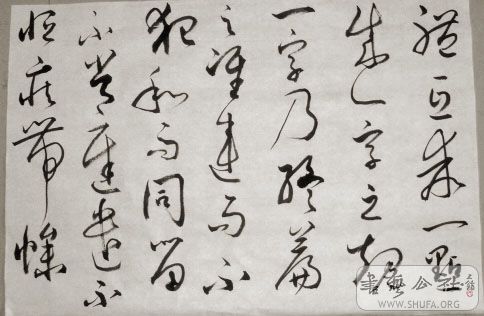 體互乖一點
成一字之規
一字乃終篇
之准違而不
犯和而同留
不常遲遣不
恒疾帶燥
書藝公社
WWW.SHUFA.ORG